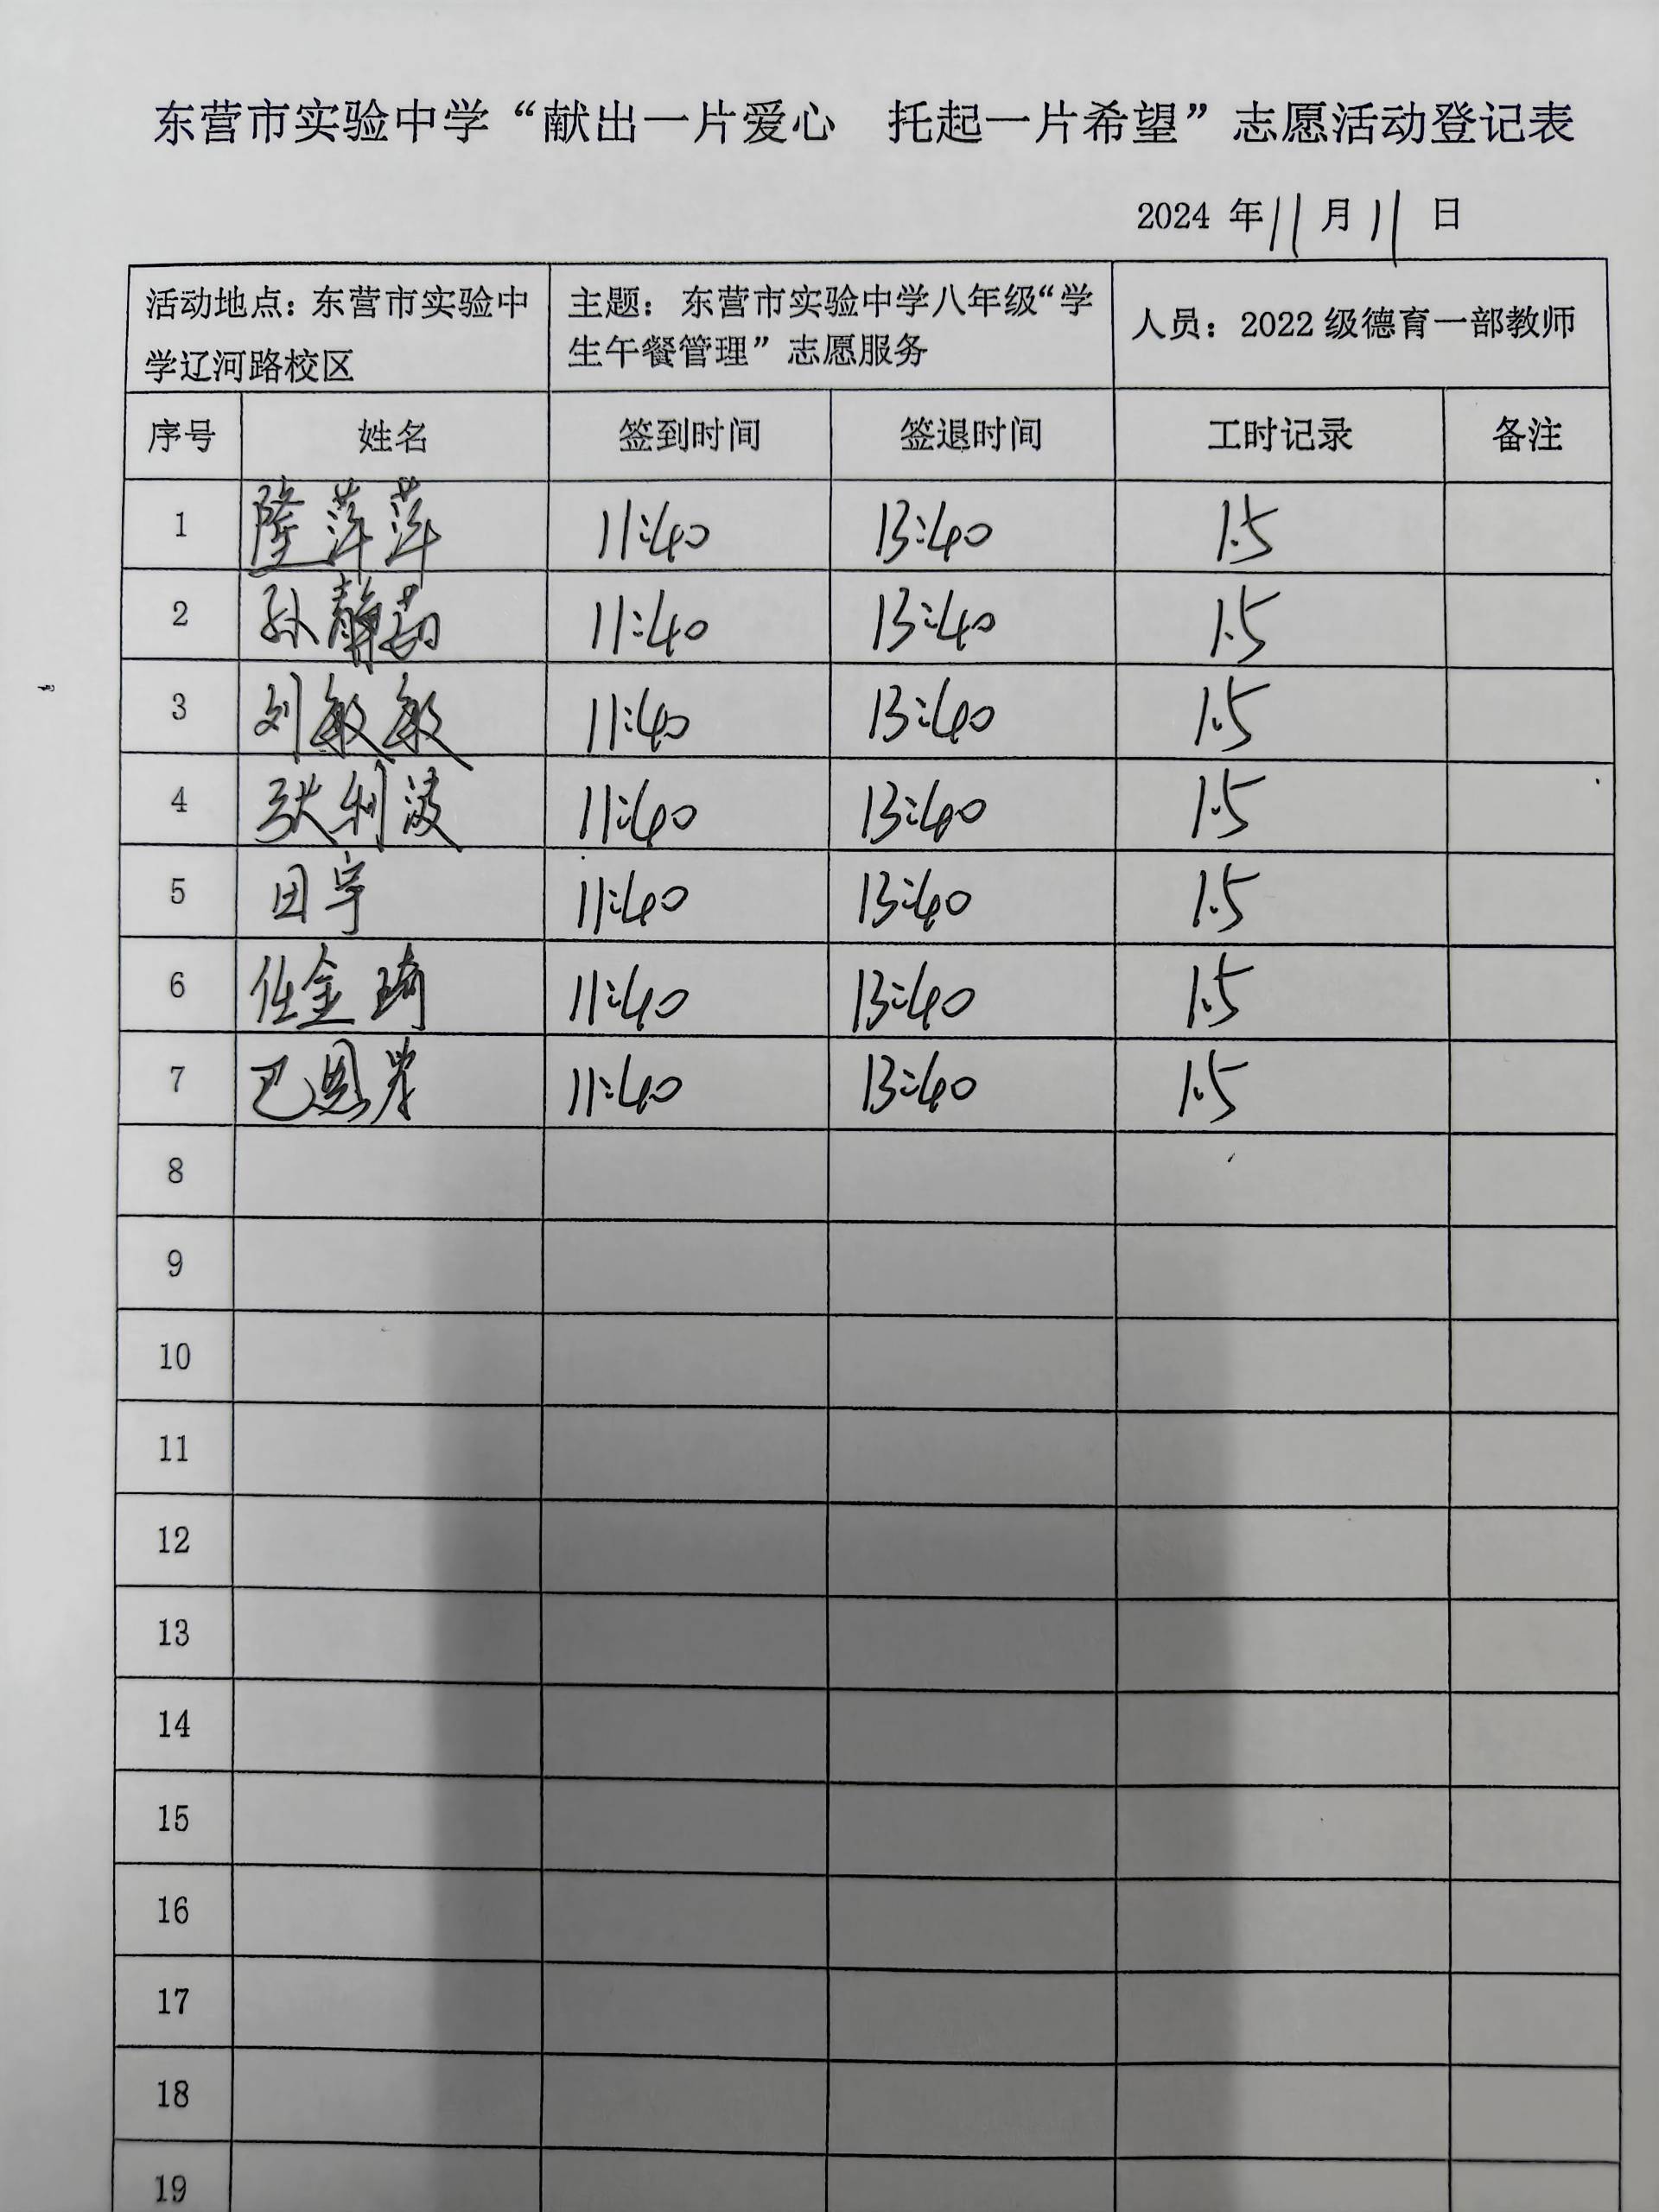 东营市实验中学“献出一片爱心 托起一片希望”志愿活动登记表
2024 年 11 月 11 日
活动地点：东营市实验中
学辽河路校区
主题：东营市实验中学八年级“学
生午餐管理”志愿服务
人员：2022 级德育一部教师
序号 姓名 签到时间 签退时间 工时记录 备注
1 隆萍萍 11:40 13:40 1.5
2 孙静茹 11:40 13:40 1.5
3 刘敏敏 11:40 13:40 1.5
4 张利波 11:40 13:40 1.5
5 田宇 11:40 13:40 1.5
6 任金琦 11:40 13:40 1.5
7 巴恩 11:40 13:40 1.5
8
9
10
11
12
13
14
15
16
17
18
19